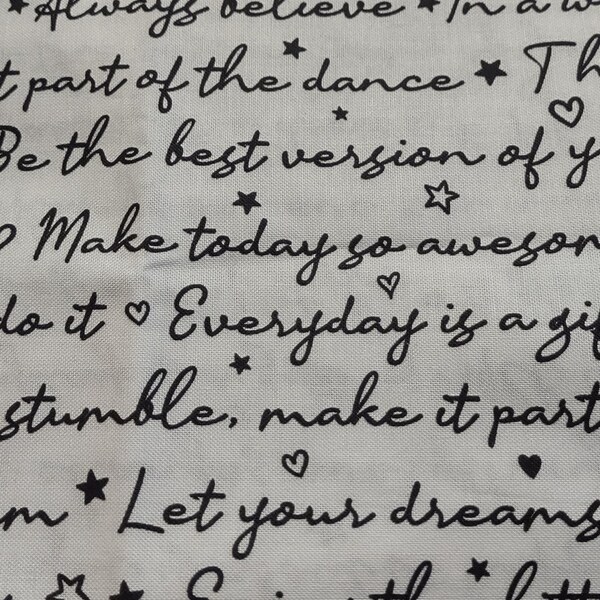 Always believe In a w
t part of the dance Th
Be the best version of y
Make today so aweson
do it Everyday is a gif
stumble, make it part
m Let your dreams